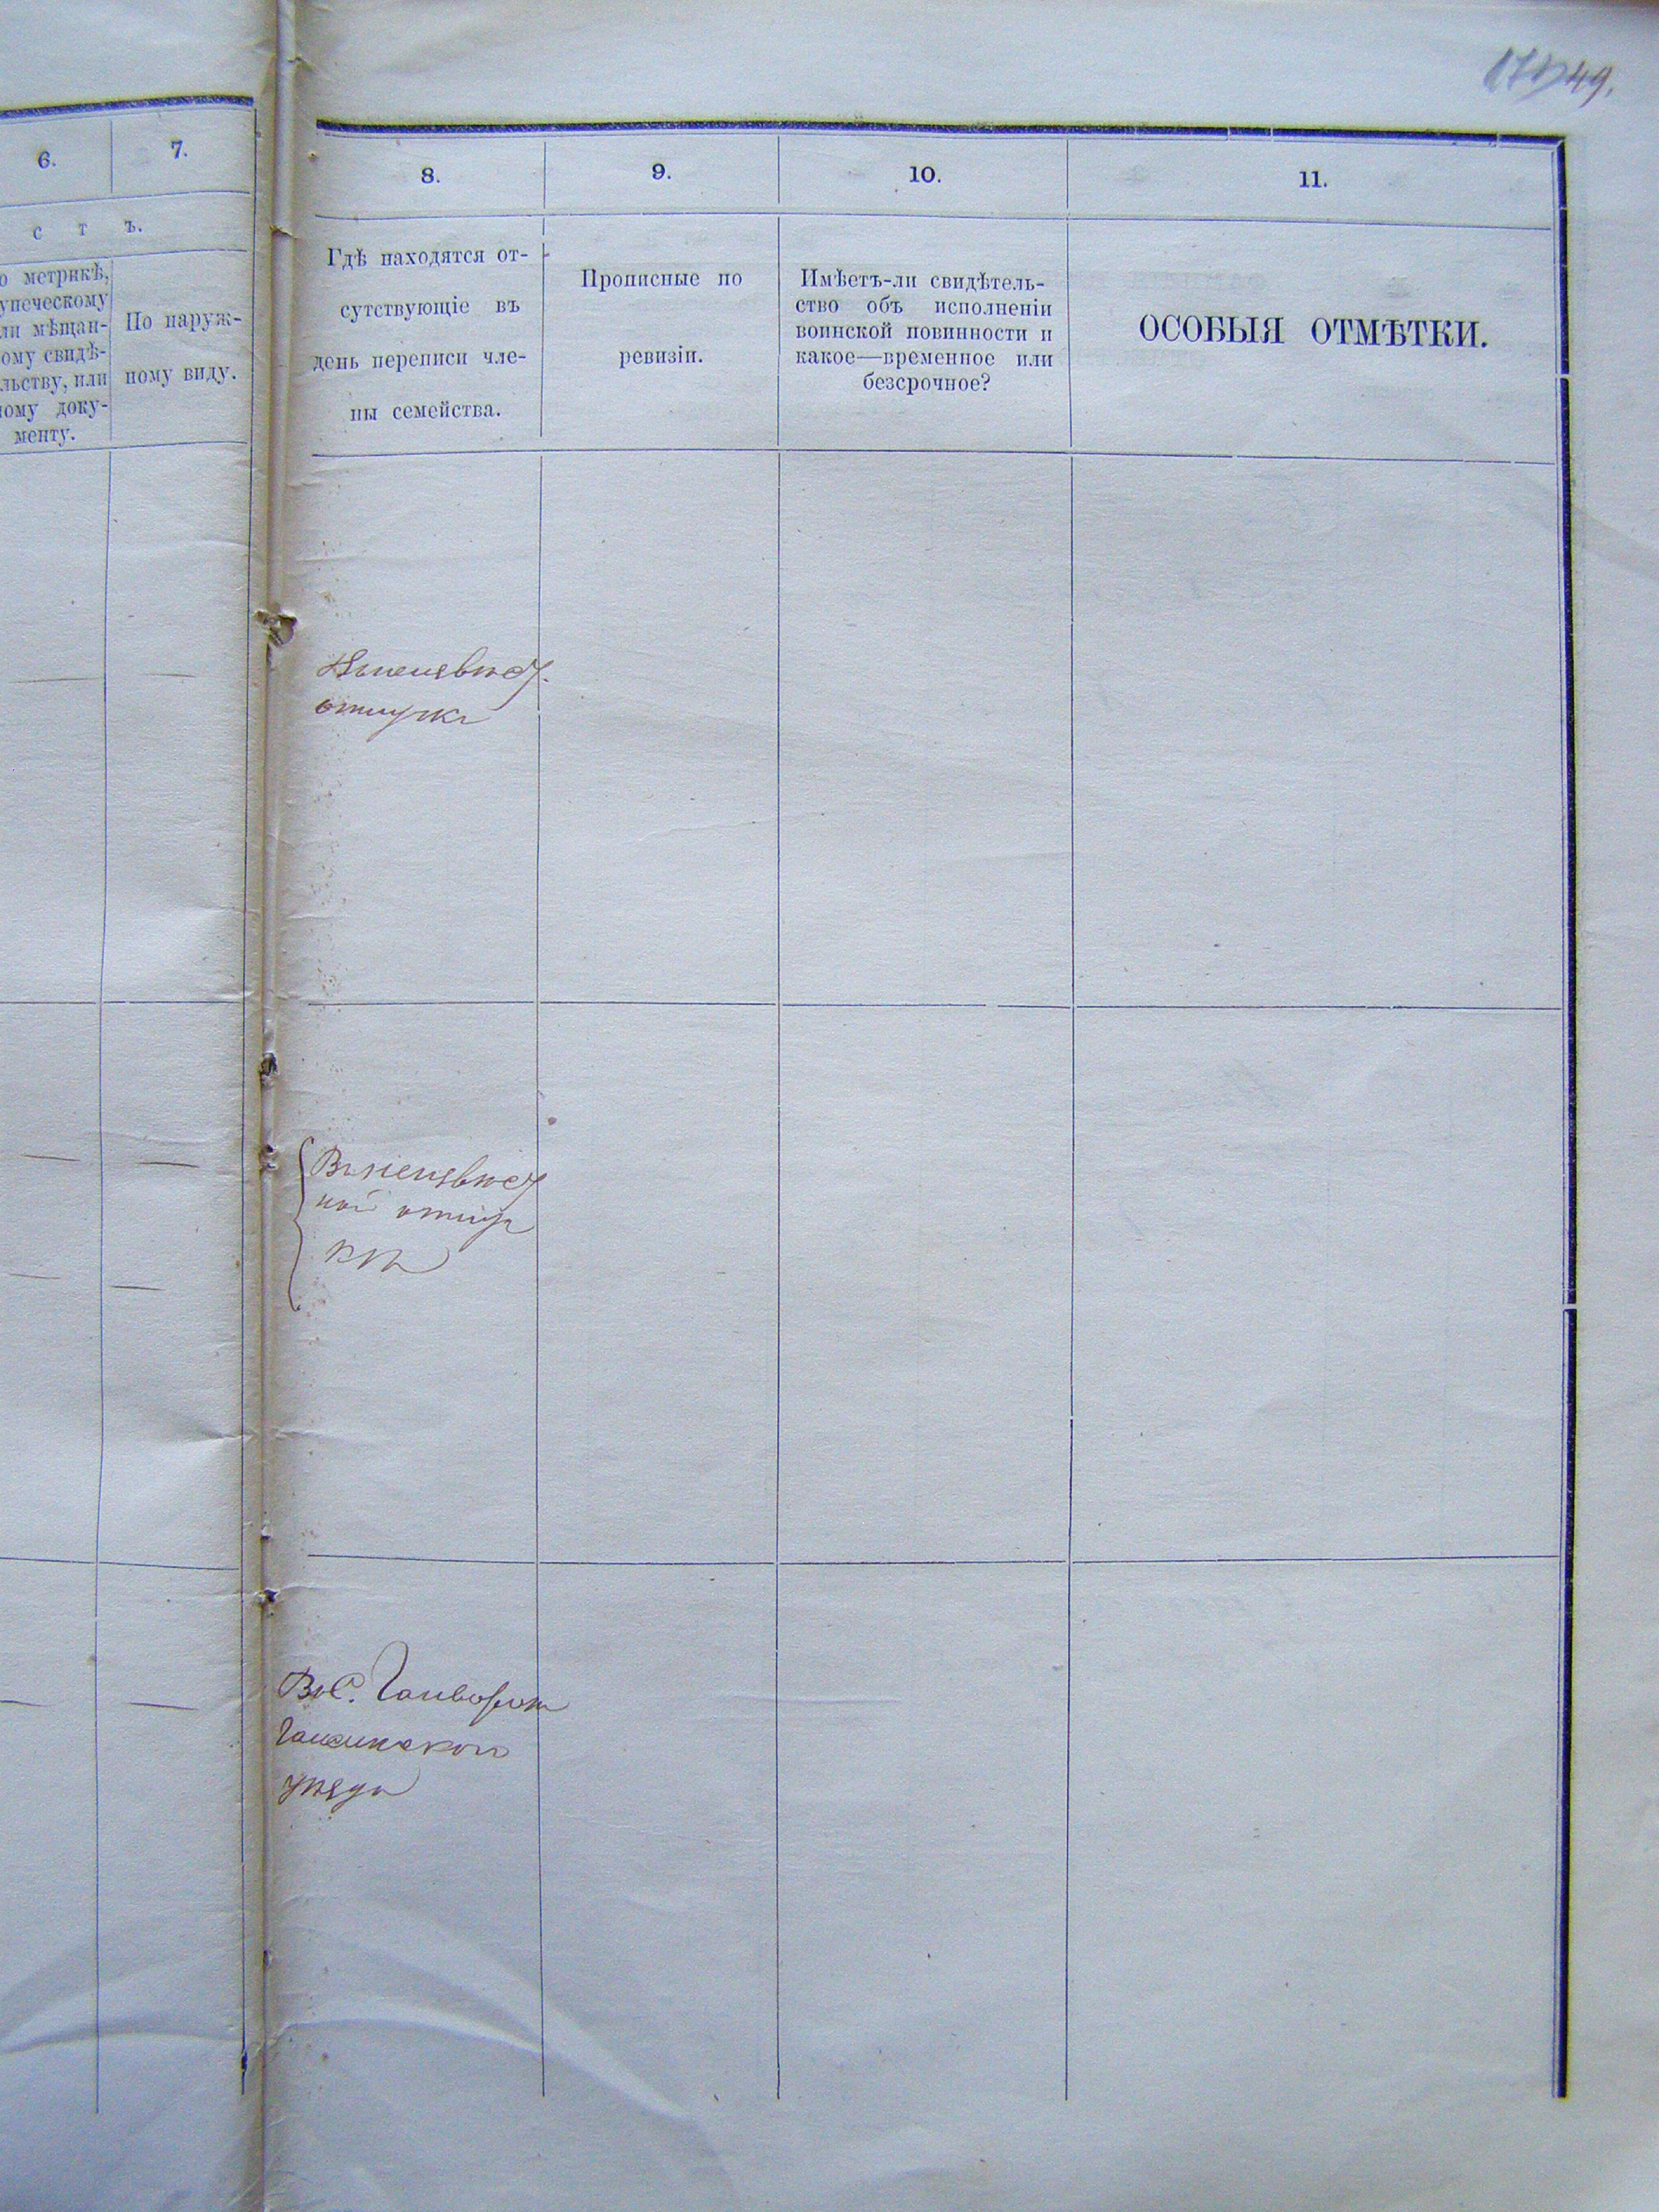 49.
6.
7.
с т ъ.
о метрикѣ,
упеческому
ли мѣщан-
ому свидѣ-
льству, или
ному доку-
менту.
По наруж-
ному виду.
8.
9.
10.
11.
Гдѣ находятся от-
сутствующіе въ
день переписи чле-
ны семейства.
Прописные по
ревизіи.
Имѣетъ-ли свидѣтель-
ство объ исполненіи
воинской повинности и
какое—временное или
безсрочное?
ОСОБЫЯ ОТМѢТКИ.
отлучкѣ
ной отлуч
кѣ
Въ С.
уѣзда